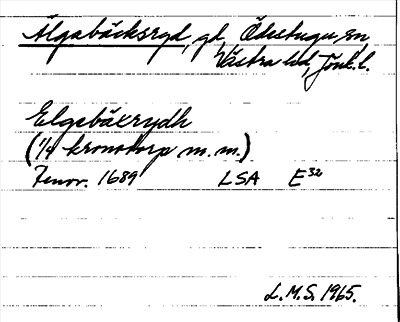 Älgabäcksryd, gd, Ödestugu sn,
Västra hd, Jönk. l.
Elgebäxrydh
(1/4 kronotorp m.m.)
1689 LSA E32
L.M.S. 1965.